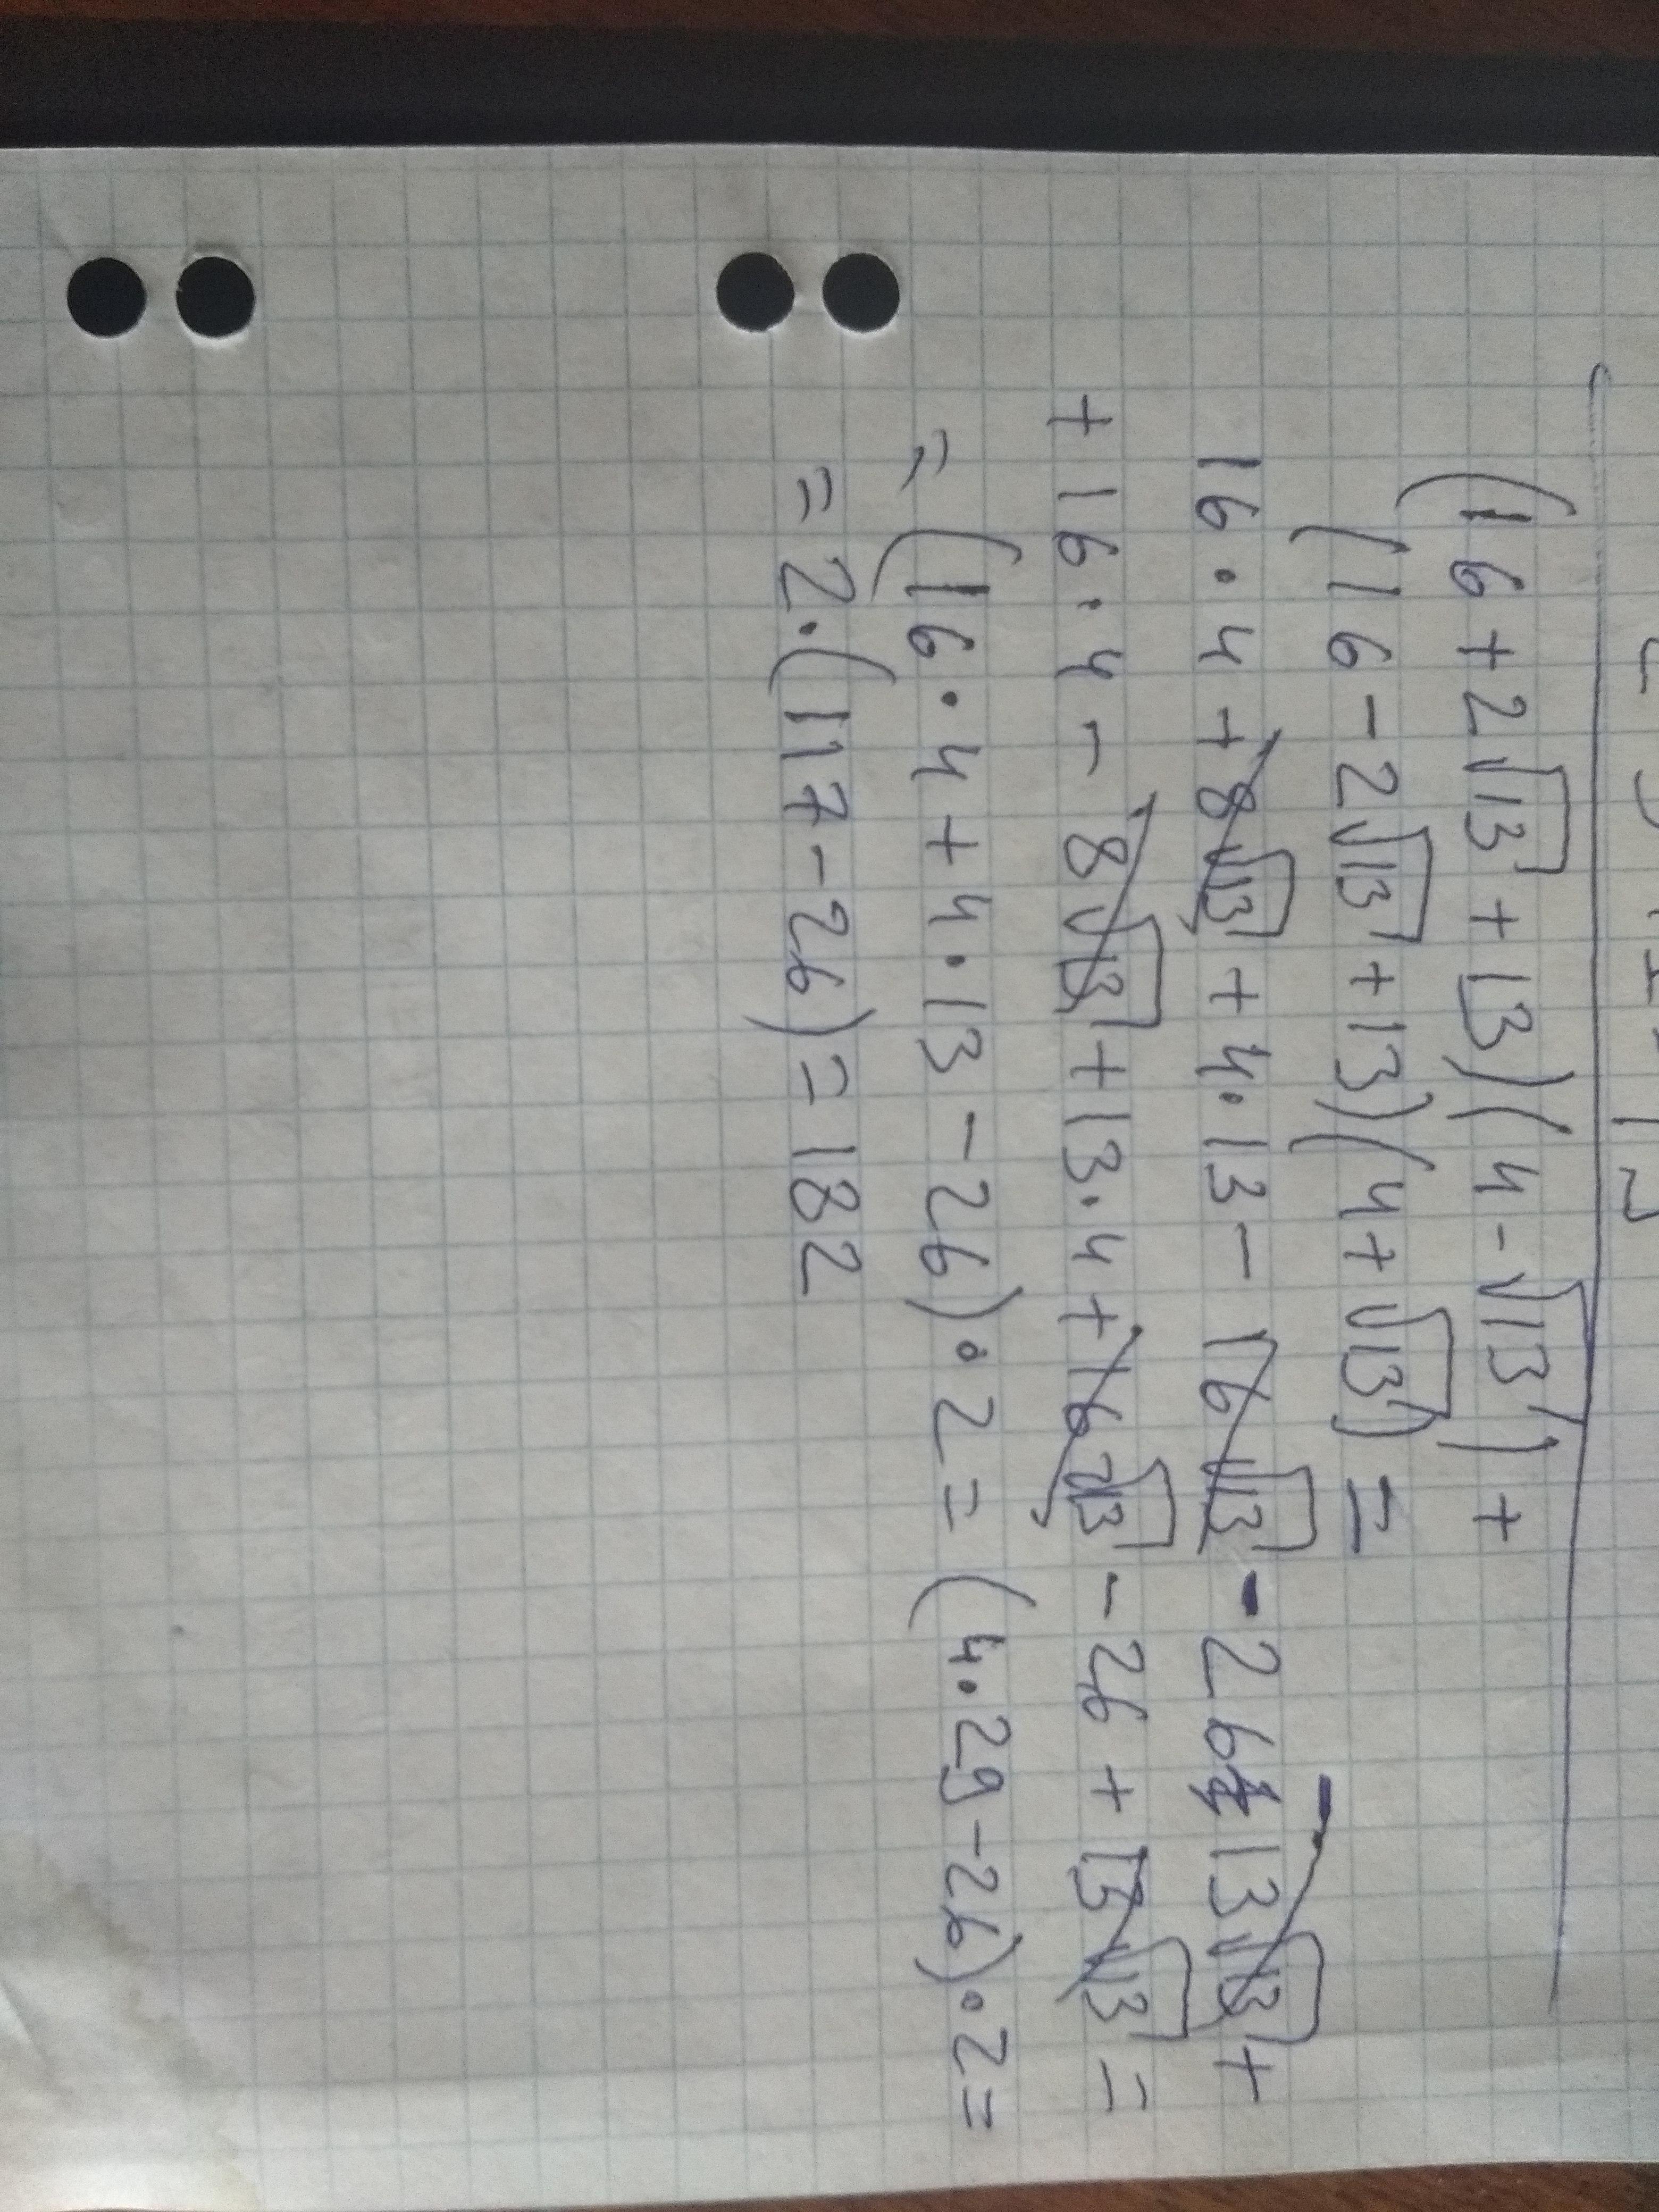 (16 + 2√13 + 13)(4 - √13) +
(16 - 2√13 + 13)(4 + √13) =
16 · 4 + 8√13 + 4 · 13 - 16√13 - 26 - 13√13 +
+ 16 · 4 - 8√13 + 13 · 4 + 16√13 - 26 + 13√13 =
= (16 · 4 + 4 · 13 - 26) · 2 = (4 · 29 - 26) · 2 =
= 2 · (117 - 26) = 182